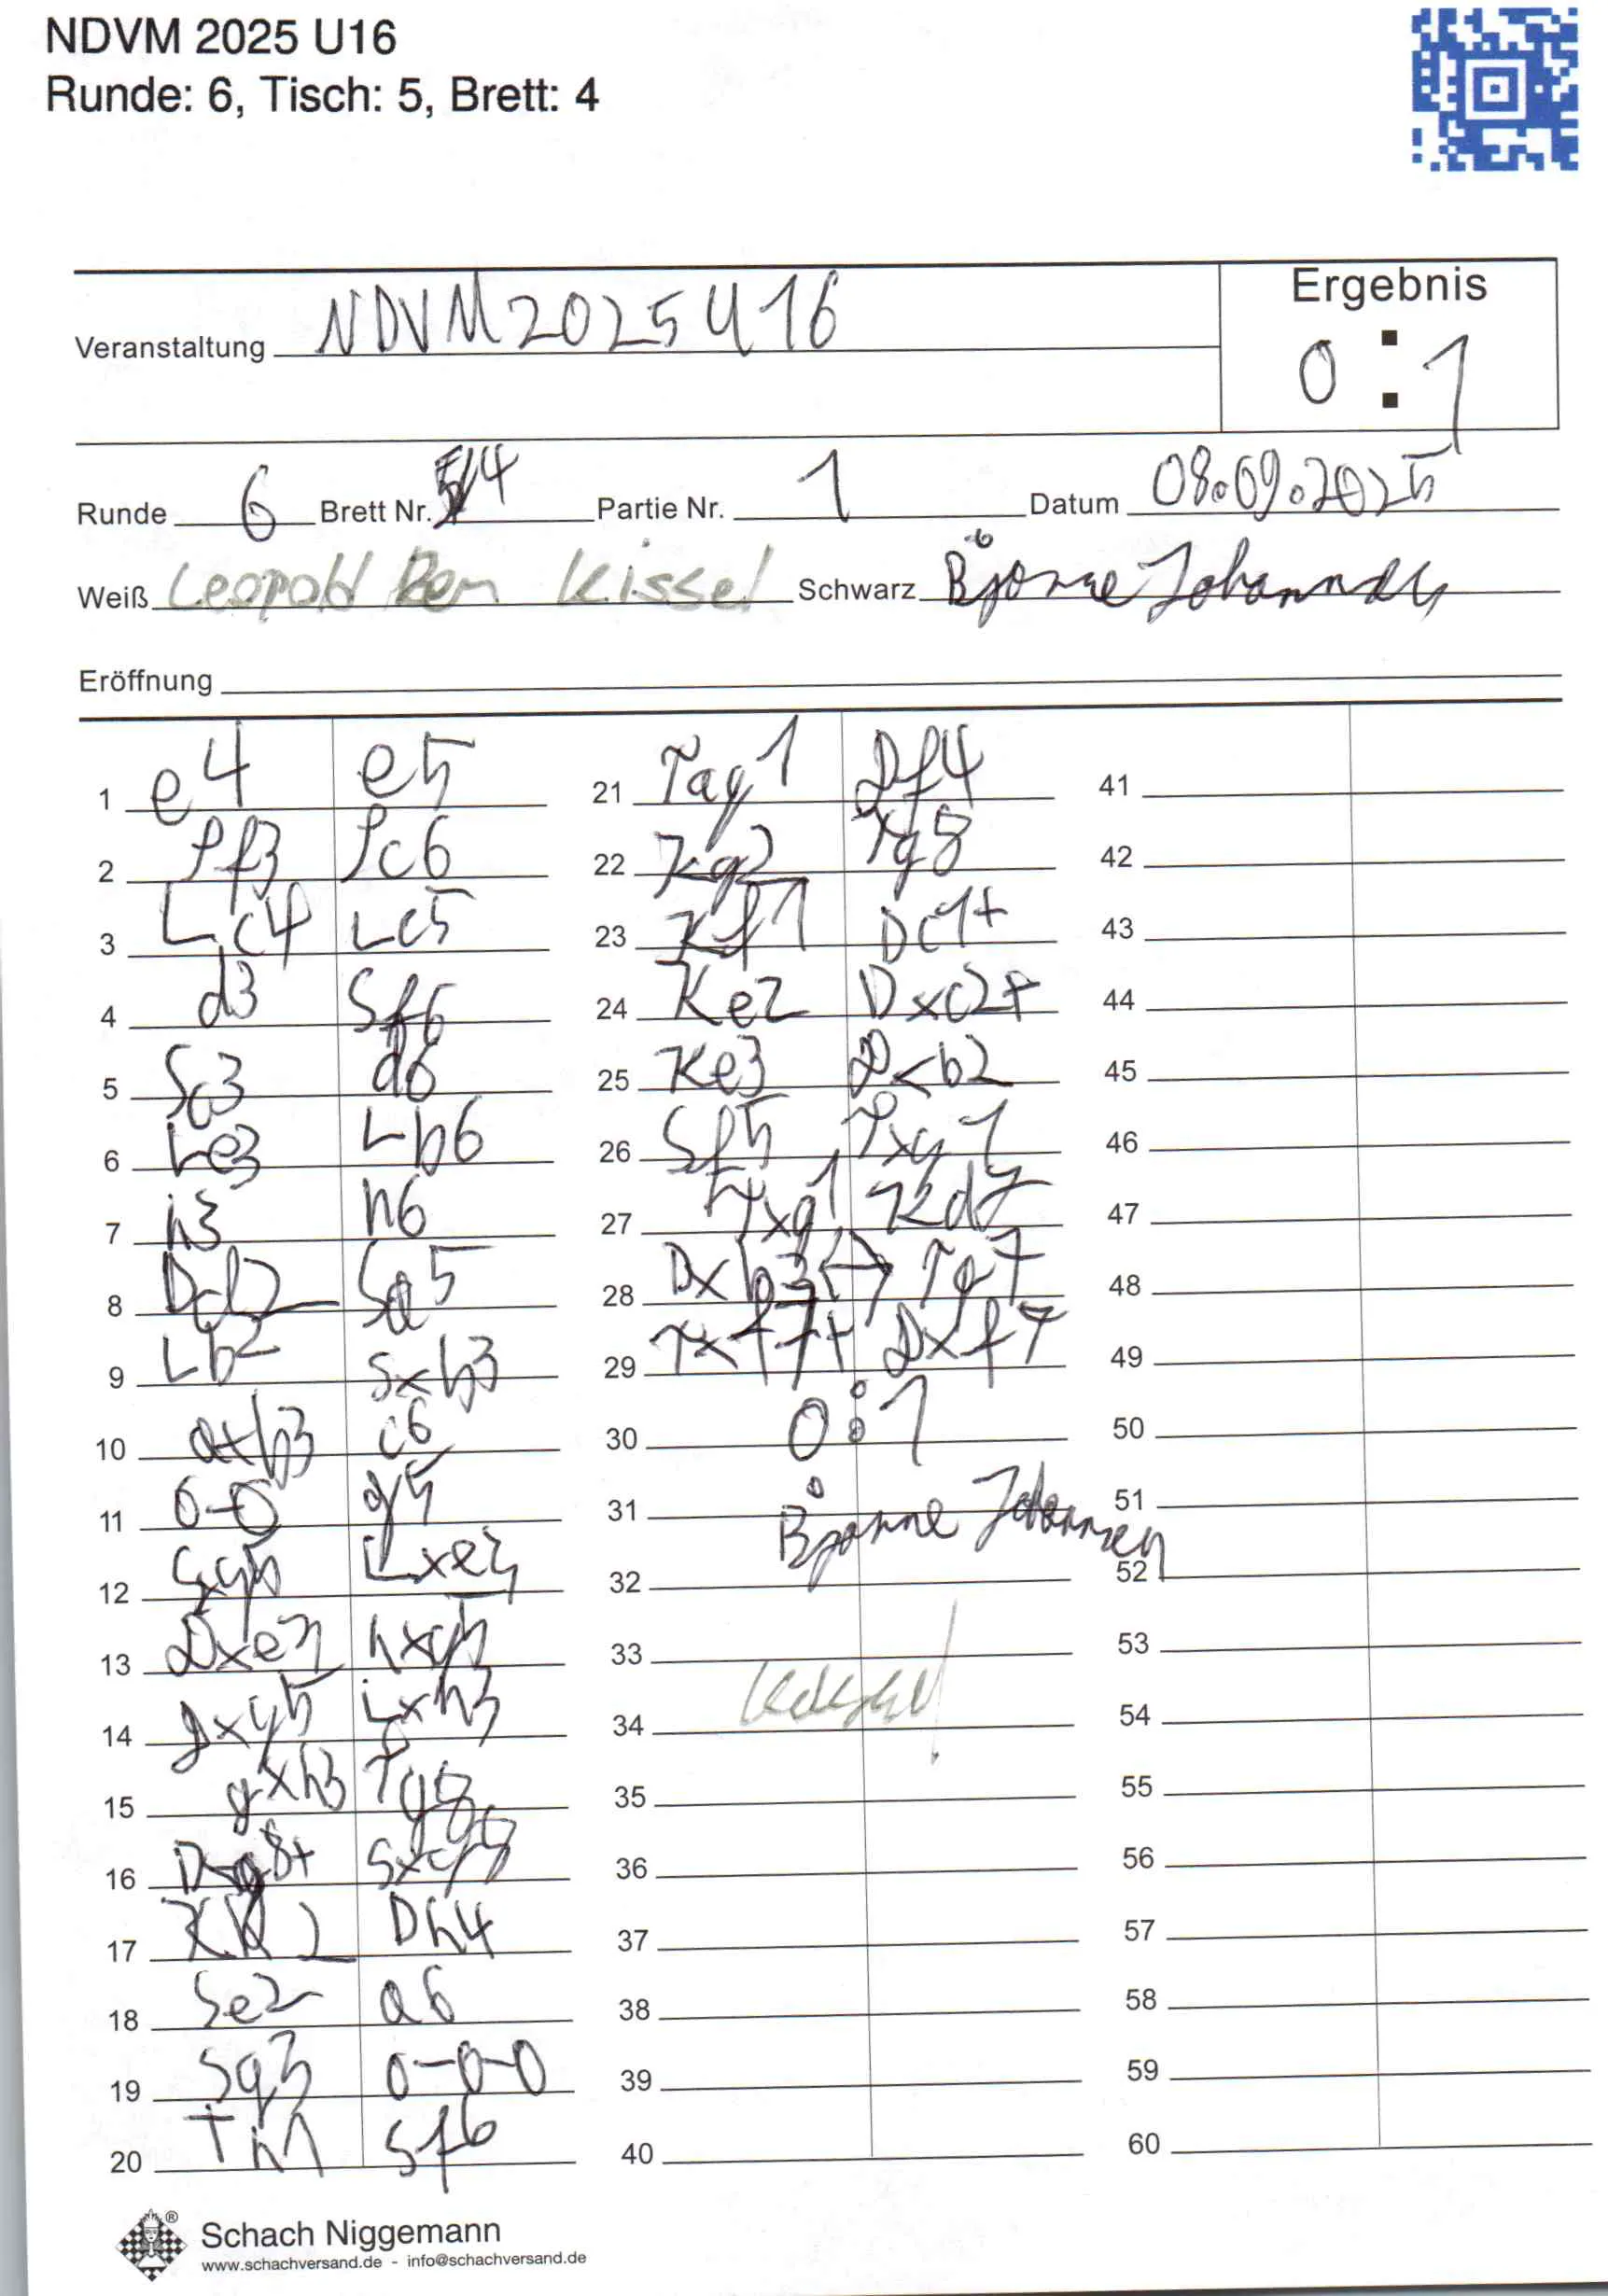 NDVM 2025 U16
Runde: 6, Tisch: 5, Brett: 4
Ergebnis
Veranstaltung NDVM 2025 U16
0 : 1
Runde 6 Brett Nr. 5/4 Partie Nr. 1 Datum 08.09.2025
Weiß Leopold Ben Kissel Schwarz Bjarne Johannsen
Eröffnung
1 e4 e5
2 Sf3 Sc6
3 Lc4 Lc5
4 d3 Sf6
5 Sc3 d6
6 Le3 Lb6
7 h3 h6
8 Dd2 Sa5
9 Lb2 Sxb3
10 axb3 c6
11 0-0 g5
12 Sxg5 Lxe3
13 Dxe3 hxg5
14 Dxg5 Lxh3
15 gxh3 Tg8
16 Dxg8+ Sxg8
17 Kh2 Dh4
18 Se2 a6
19 Sg3 0-0-0
20 Th1 Sf6
21 Tag1 Df4
22 Kg2 Tg8
23 Kf1 Dc1+
24 Ke2 Dxc2+
25 Ke3 Dxb2
26 Sf5 Txg1
27 Txg1 Kd7
28 Dxb3(-) Tg7
29 Txf7+ Dxf7
30 0:1
31 Bjarne Johannsen
32
33
34
35
36
37
38
39
40
41
42
43
44
45
46
47
48
49
50
51
52
53
54
55
56
57
58
59
60
Schach Niggemann
www.schachversand.de - info@schachversand.de